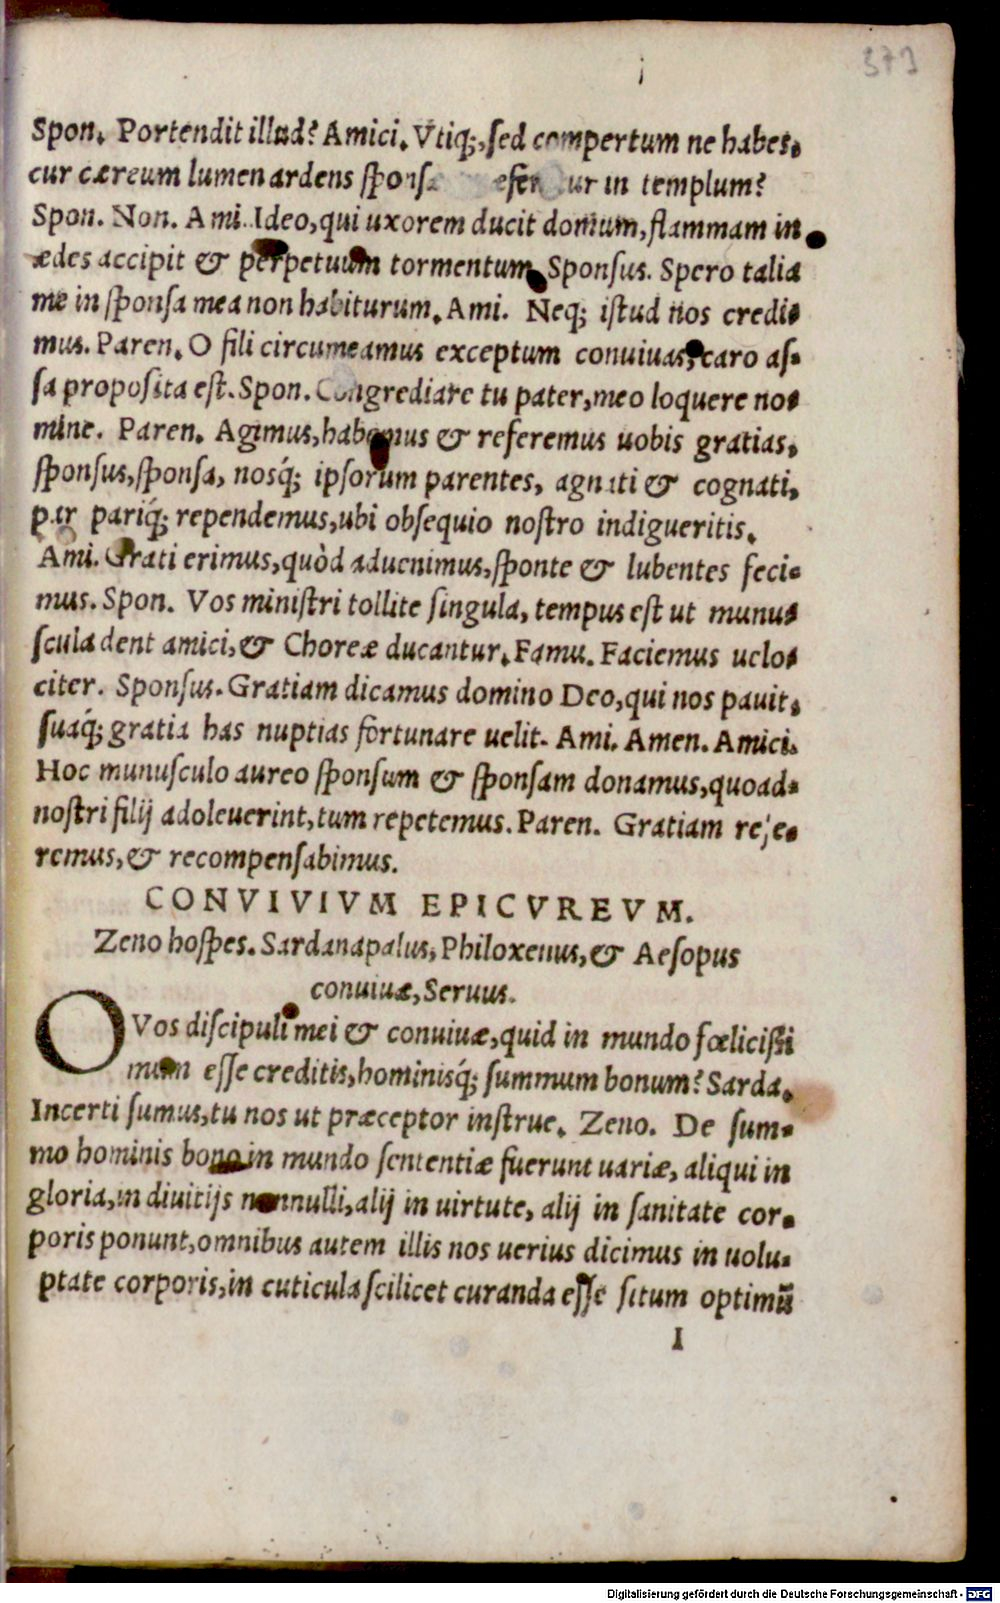 373
Spon. Portendit illud? Amici. Vtiq;, sed compertum ne habes,
cur cæreum lumen ardens in templum?
Spon. Non. Ami. Ideo, qui uxorem ducit domum, flammam in
ædes accipit & perpetuum tormentum. Sponsus. Spero talia
me in sponsa mea non habiturum. Ami. Neq; istud nos credi-
mus. Paren. O fili circumeamus exceptum conuiuas, caro as-
sa proposita est. Spon. Congrediare tu pater, meo loquere no-
mine. Paren. Agimus, habemus & referemus uobis gratias,
sponsus, sponsa, nosq́; ipsorum parentes, agnati & cognati,
par pariq́; rependemus, ubi obsequio nostro indigueritis.
Ami. Grati erimus, quòd aduenimus, sponte & lubentes feci-
mus. Spon. Vos ministri tollite singula, tempus est ut munu-
scula dent amici, & Choreæ ducantur. Famu. Faciemus uelo-
citer. Sponsus. Gratiam dicamus domino Deo, qui nos pauit,
suaq́; gratia has nuptias fortunare uelit. Ami. Amen. Amici.
Hoc munusculo aureo sponsum & sponsam donamus, quoad-
nostri filij adoleuerint, tum repetemus. Paren. Gratiam refe-
remus, & recompensabimus.
CONVIVIVM EPICVREVM.
Zeno hospes. Sardanapalus, Philoxenus, & Aesopus
conuiuæ, Seruus.
O Vos discipuli mei & conuiuæ, quid in mundo fœlicissi
mum esse creditis, hominisq́; summum bonum? Sarda.
Incerti sumus, tu nos ut præceptor instrue. Zeno. De sum-
mo hominis bono in mundo sententiæ fuerunt uariæ, aliqui in
gloria, in diuitijs nonnulli, alij in uirtute, alij in sanitate cor-
poris ponunt, omnibus autem illis nos uerius dicimus in uolu-
ptate corporis, in cuticula scilicet curanda esse situm optimũ
I
Digitalisierung gefördert durch die Deutsche Forschungsgemeinschaft - DFG